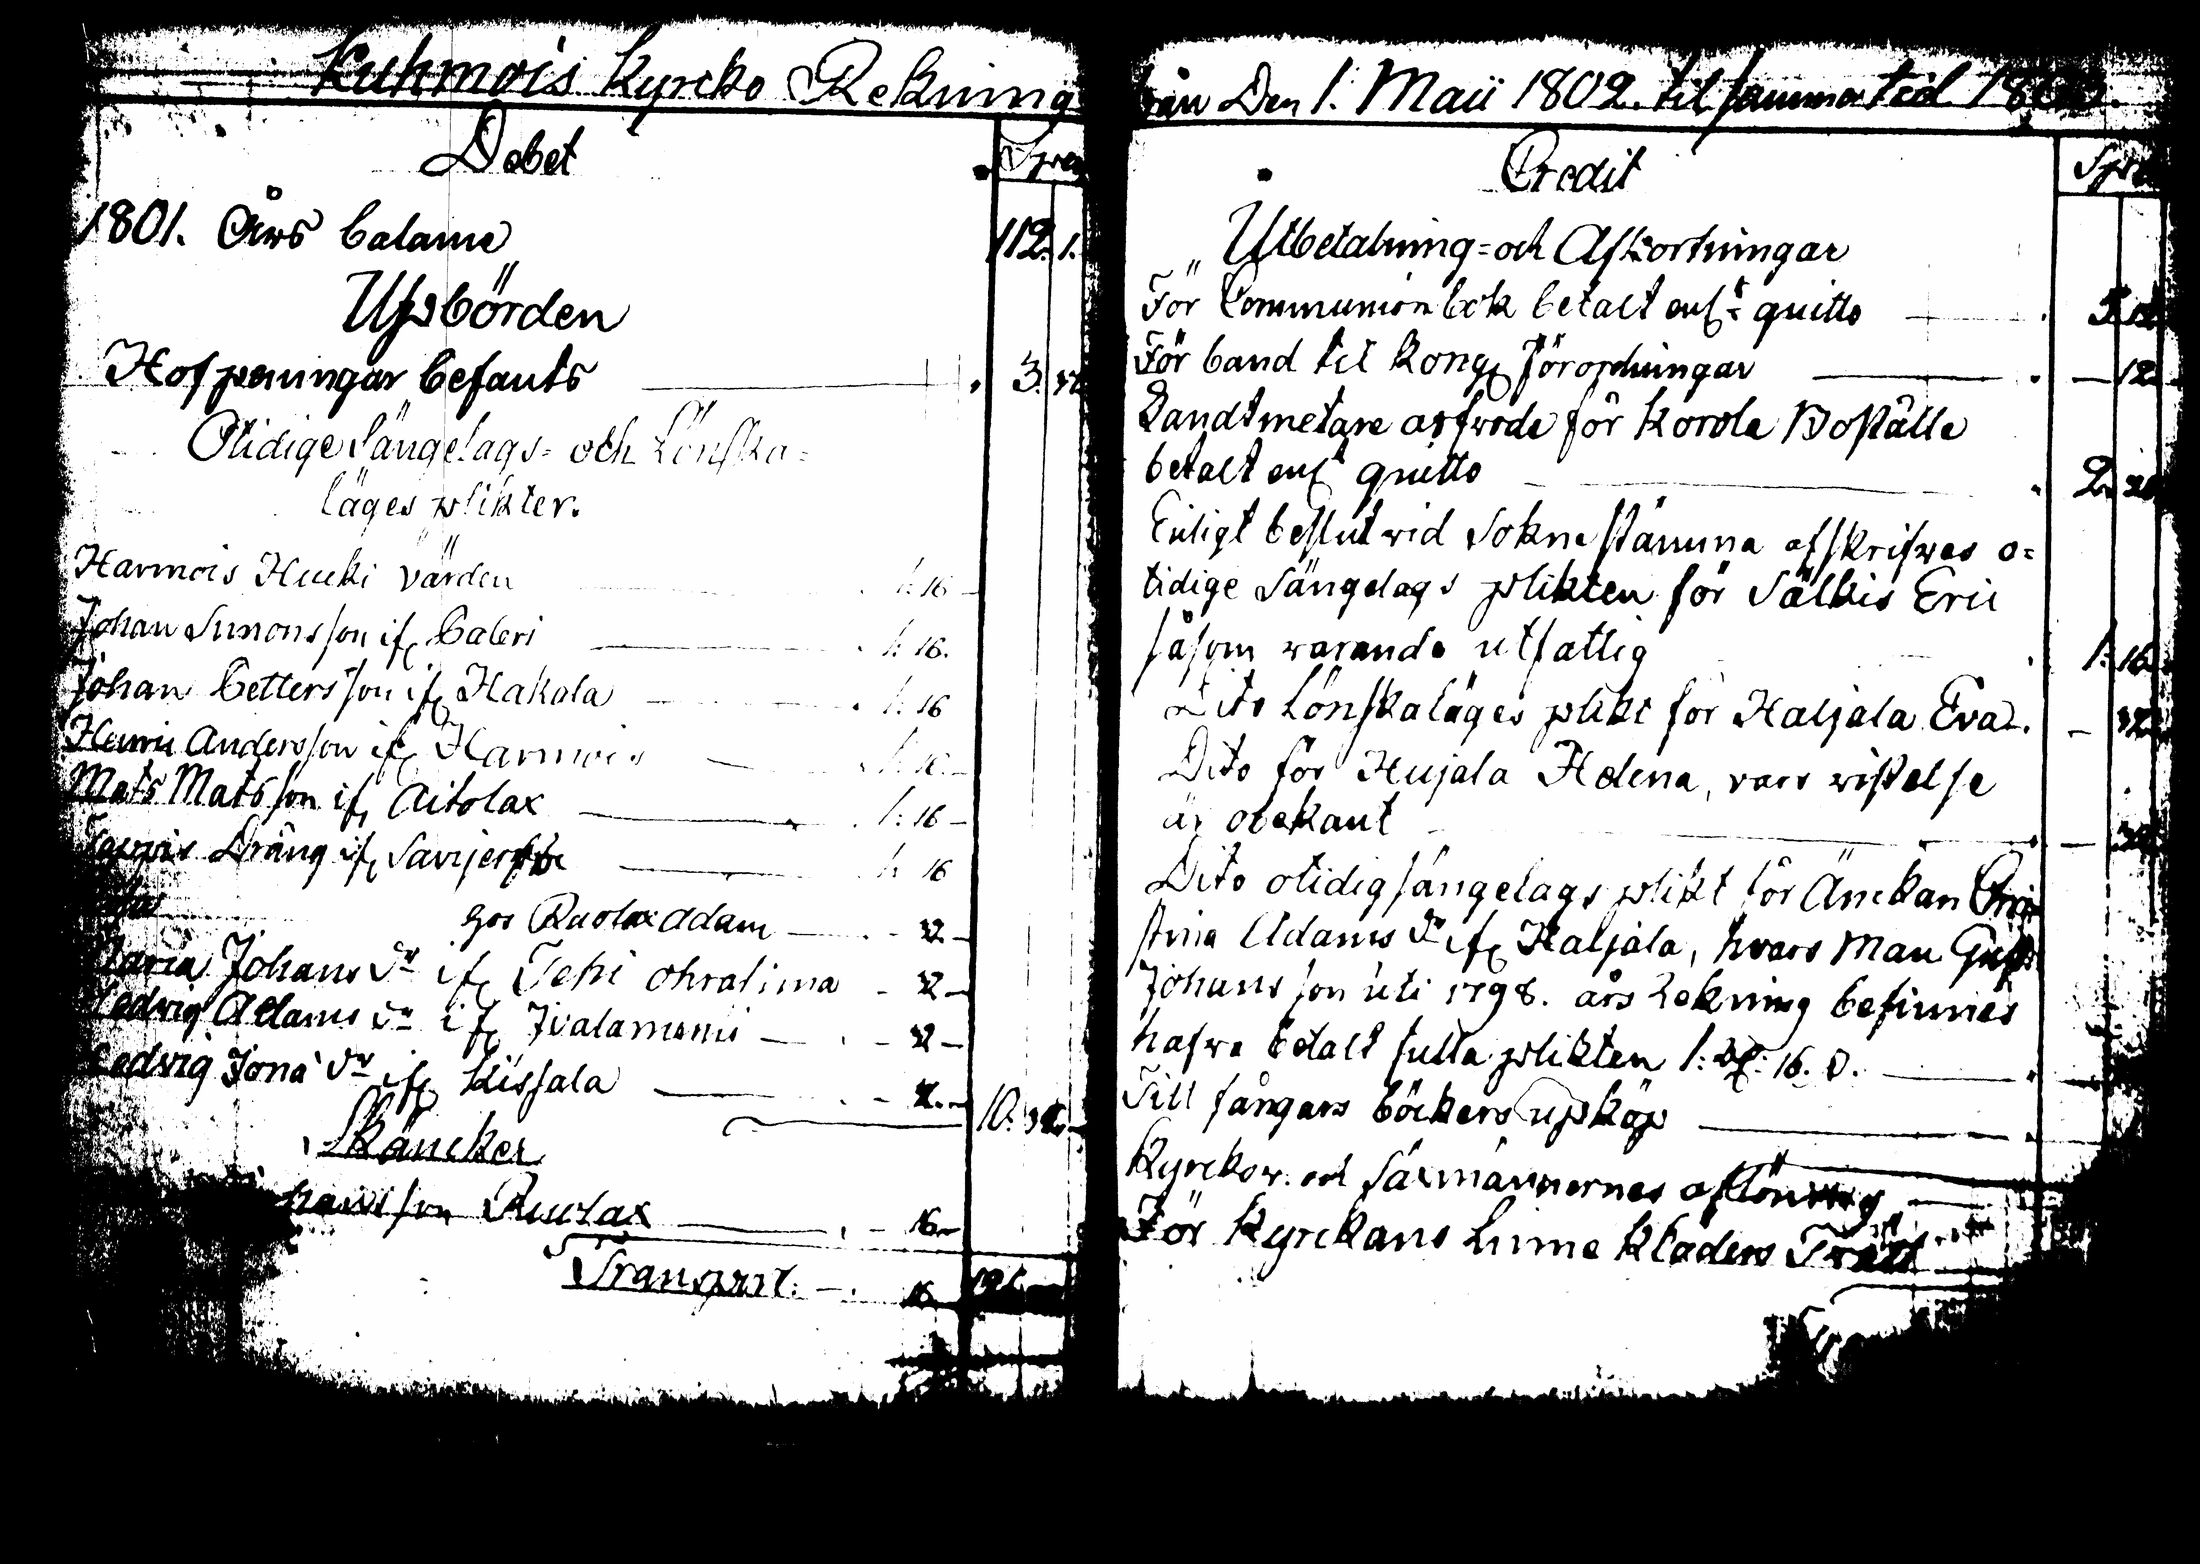 Kuhmois Kyrcko Rekning
Debet
1801. Års balance 112. 1.
Upbörden
Hofpeningar befants 3.
Otidige Sängelags- och Lönska=
läges plikter.
Harmois Hucki värden 1: 16
Johan Simonsson if Caleri 1: 16.
Johan Pettersson if Hakala 1: 16
Henric Andersson if Harmois 1: 16
Mats Matsson if Aitolax 1: 16
Dräng if 1: 16
hos Ruolax Adam 32
Maria Johans dr if Tehi Ohralima 32
Hedvig Adams dr if 32
Hedvig Jona dr if Kissala 32 10.
Skäncker
son Ruolax 16
Transport. 16
från Den 1. Maii 1802. til samma tid
Credit
Utbetalning= och Afkortningar
För Communion bok betalt enl:t quitto
För band til Kong: Förordningar 12
Landtmetare arfvode för Korola Boställe
betalt enl:t quitto 2.
Enligt beslut vid Sokne stämma afskrifves o=
tidige Sängelags plikten för Sälkis Eric
såsom varande utfattig 1: 16
Dito Lönskaläges plikt för Haljala Eva 32
Dito för Hujala Helena, vars vistelse
är obekant 32
Dito otidig sängelags plikt för Änckan Chri
stina Adams dr if Haljala, hvars Man
Johansson uti 1798. års Rekning befinnes
hafva betalt fulla plikten 1: 16. d.
Till fångars böckers upköp
Kyrckov. och Säxmännernes aflöning
För Kyrckans Linne Kläders Tvätt